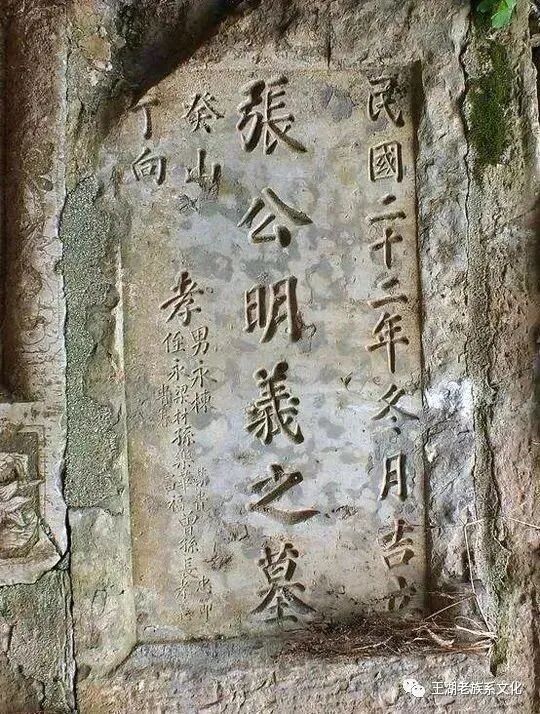 民國二十二年冬月吉
張公明義之墓
癸山
丁向
孝男永棟
侄永
孫
曾孫長
王湖老族系文化